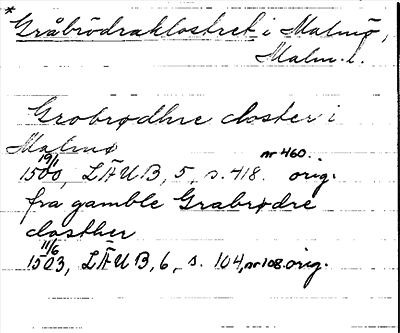 * Gråbrödraklostret i Malmö,
Malm. l.
Grobrødhre closter i
Malmø
19/1 1500, LÄUB, 5, s. 418. nr 460. orig.
fra gamble Grabrødre
closther
11/6 1503, LÄUB, 6, s. 104, nr 108. orig.